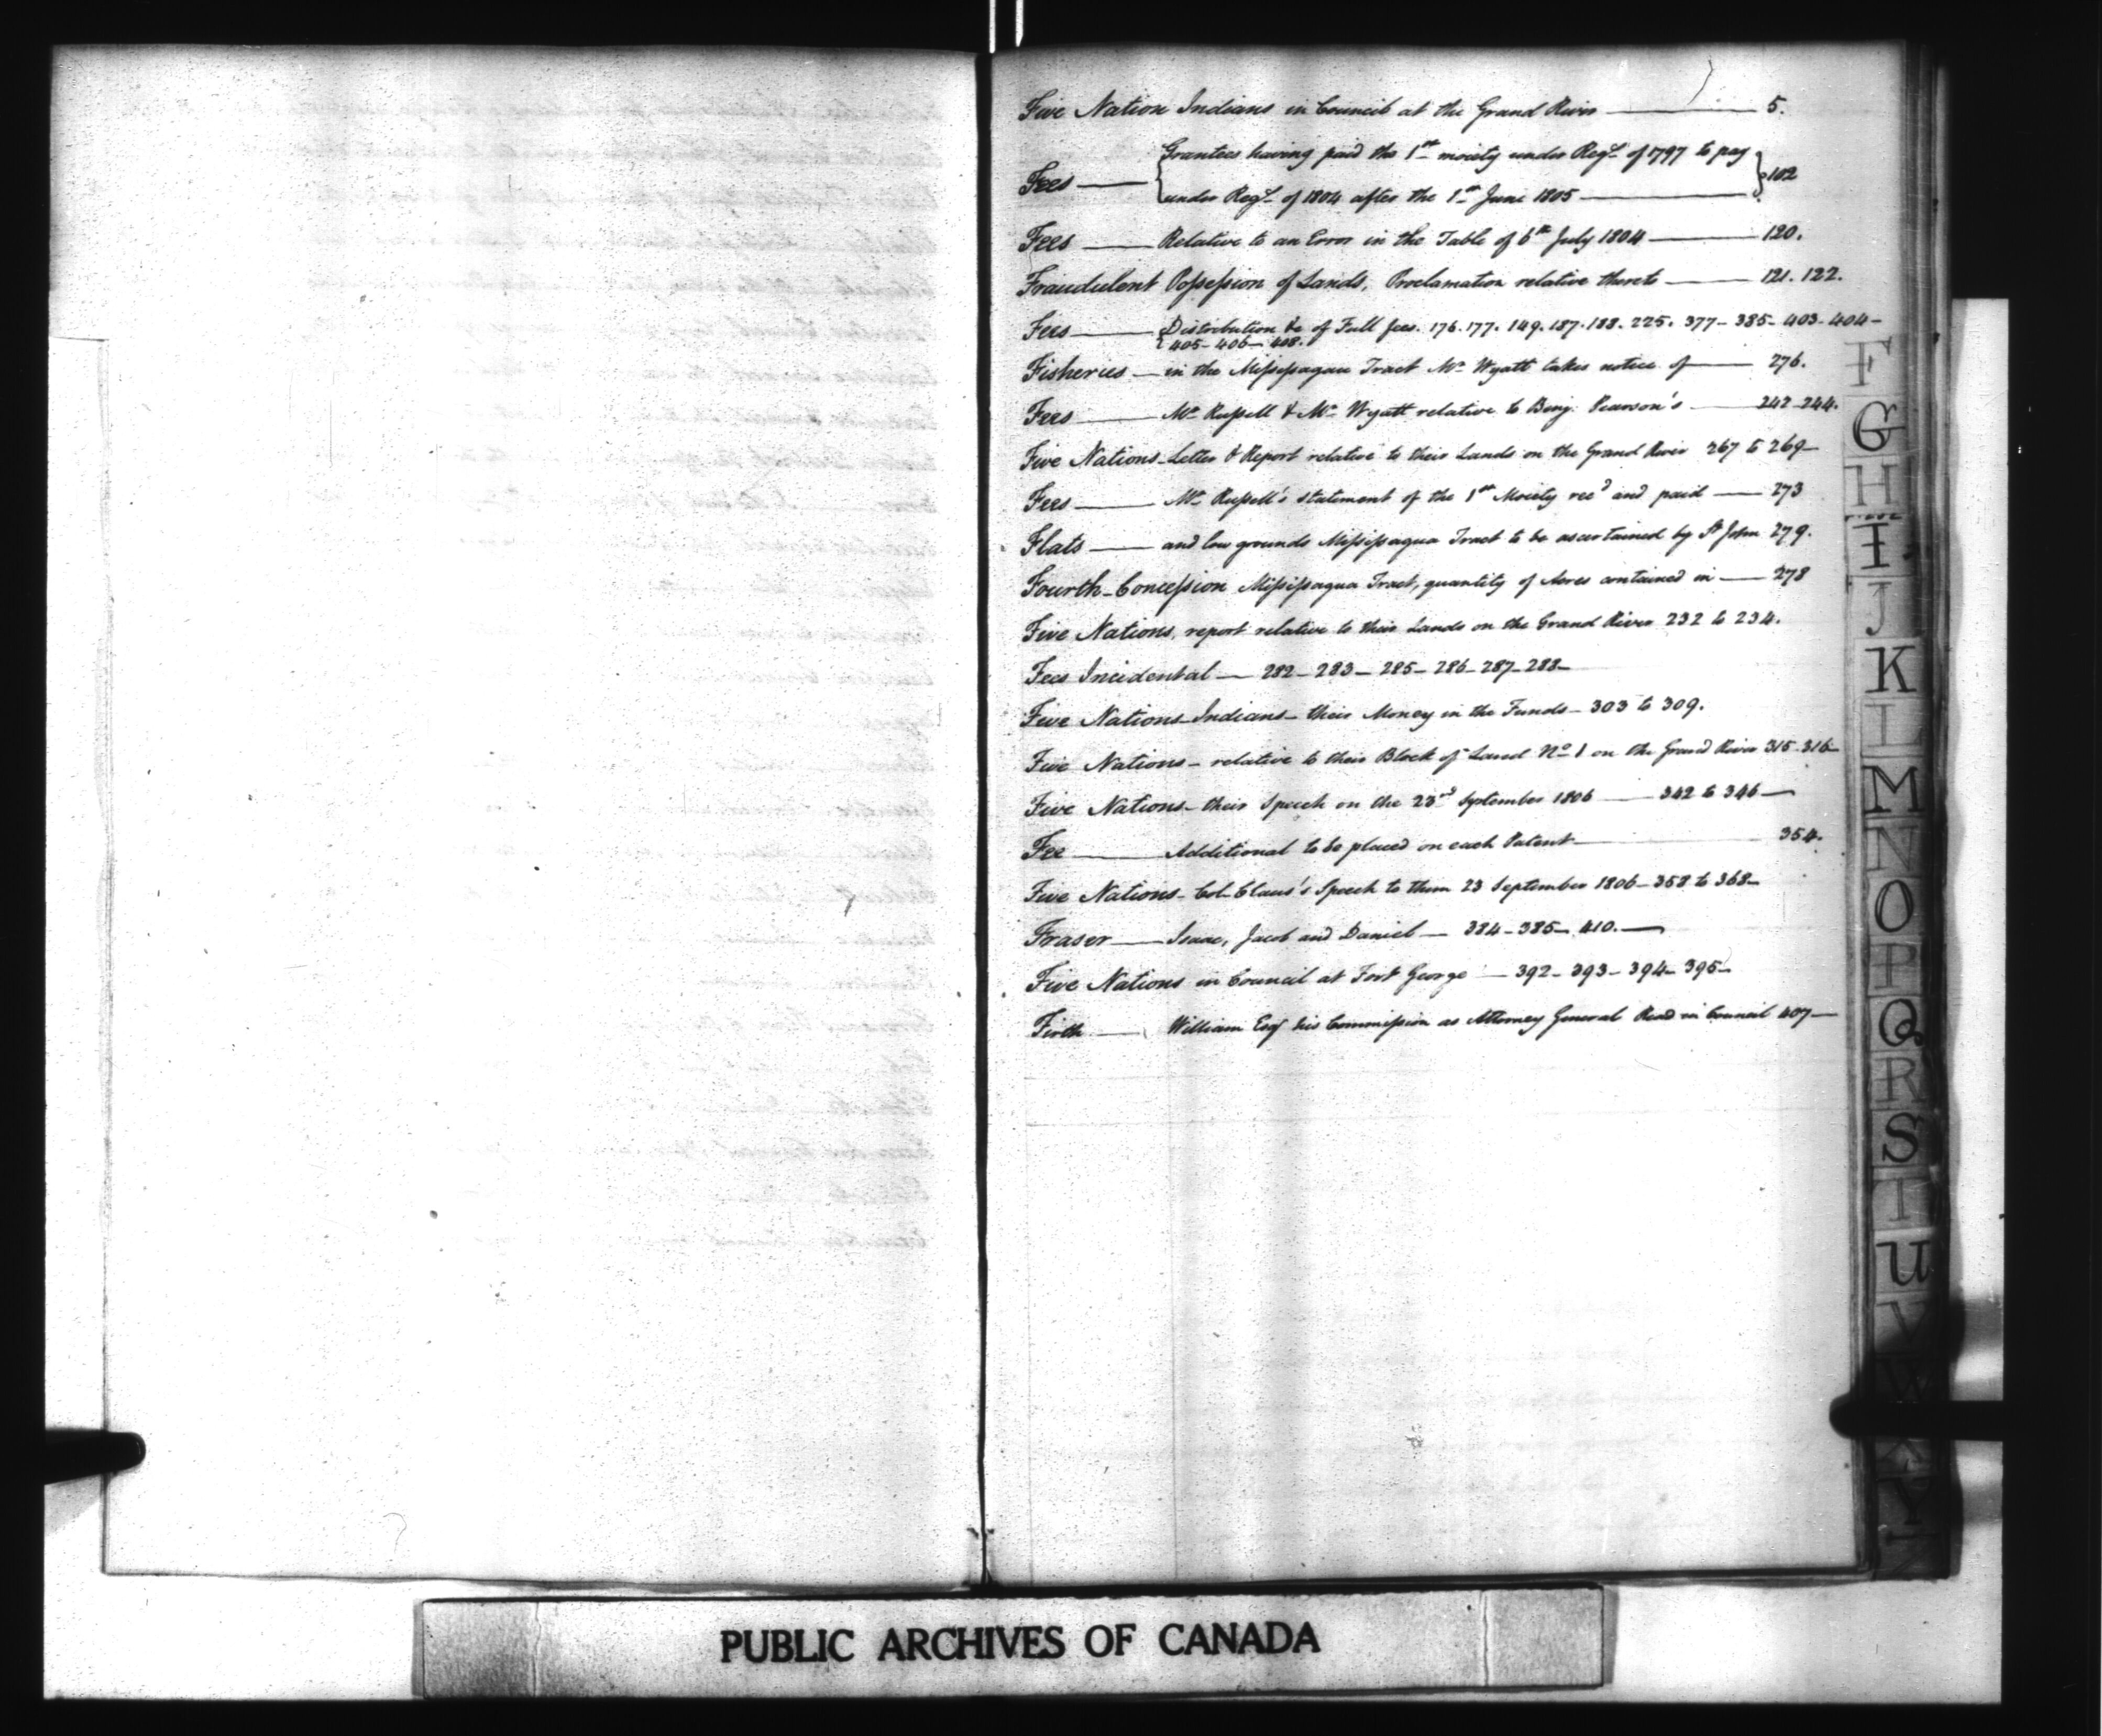 Five Nation Indians in Council at the Grand River — 5.
Fees — Grantees having paid the 1st moiety under Regl. of 1797 to pay
under Regl. of 1804 after the 1st June 1805 — 102
Fees — Relative to an Error in the Table of 6th July 1804 — 120.
Fraudulent Possession of Lands, Proclamation relative thereto — 121. 122.
Fees — Distribution &c of Full fees. 176. 177. 149. 187. 188. 225. 377 – 385 – 403 – 404 –
405 – 406 – 408.
Fisheries — in the Mississagua Tract Mr. Wyatt takes notice of — 276.
Fees — Mr. Russell & Mr. Wyatt relative to Benj. Pearson's — 242 – 244.
Five Nations – Letter & Report relative to their Lands on the Grand River 267 to 269 –
Fees — Mr. Russell's statement of the 1st Moiety rec'd and paid — 273
Flats — and low grounds Mississagua Tract to be ascertained by St John 279.
Fourth – Concession Mississagua Tract, quantity of Acres contained in — 278
Five Nations, report relative to their Lands on the Grand River 232 to 234.
Fees Incidental — 282 – 283 – 285 – 286 – 287 – 288 –
Five Nations Indians – their Money in the Funds – 303 to 309.
Five Nations – relative to their Block of Land No. 1 on the Grand River 315 – 316 –
Five Nations – their Speech on the 23rd September 1806 — 342 to 346 —
Fee — Additional to be placed on each Patent — 354.
Five Nations – Col. Claus's Speech to them 23 September 1806 – 358 to 368 –
Fraser — Isaac, Jacob and Daniel — 384 – 385 – 410. —
Five Nations in Council at Fort George — 392 – 393 – 394 – 395 –
Firth — William Esqr his Commission as Attorney General Read in Council 407 —
F
G
H
I
J
K
L
M
N
O
P
Q
R
S
T
U
V
W
X
Y
Z
PUBLIC ARCHIVES OF CANADA